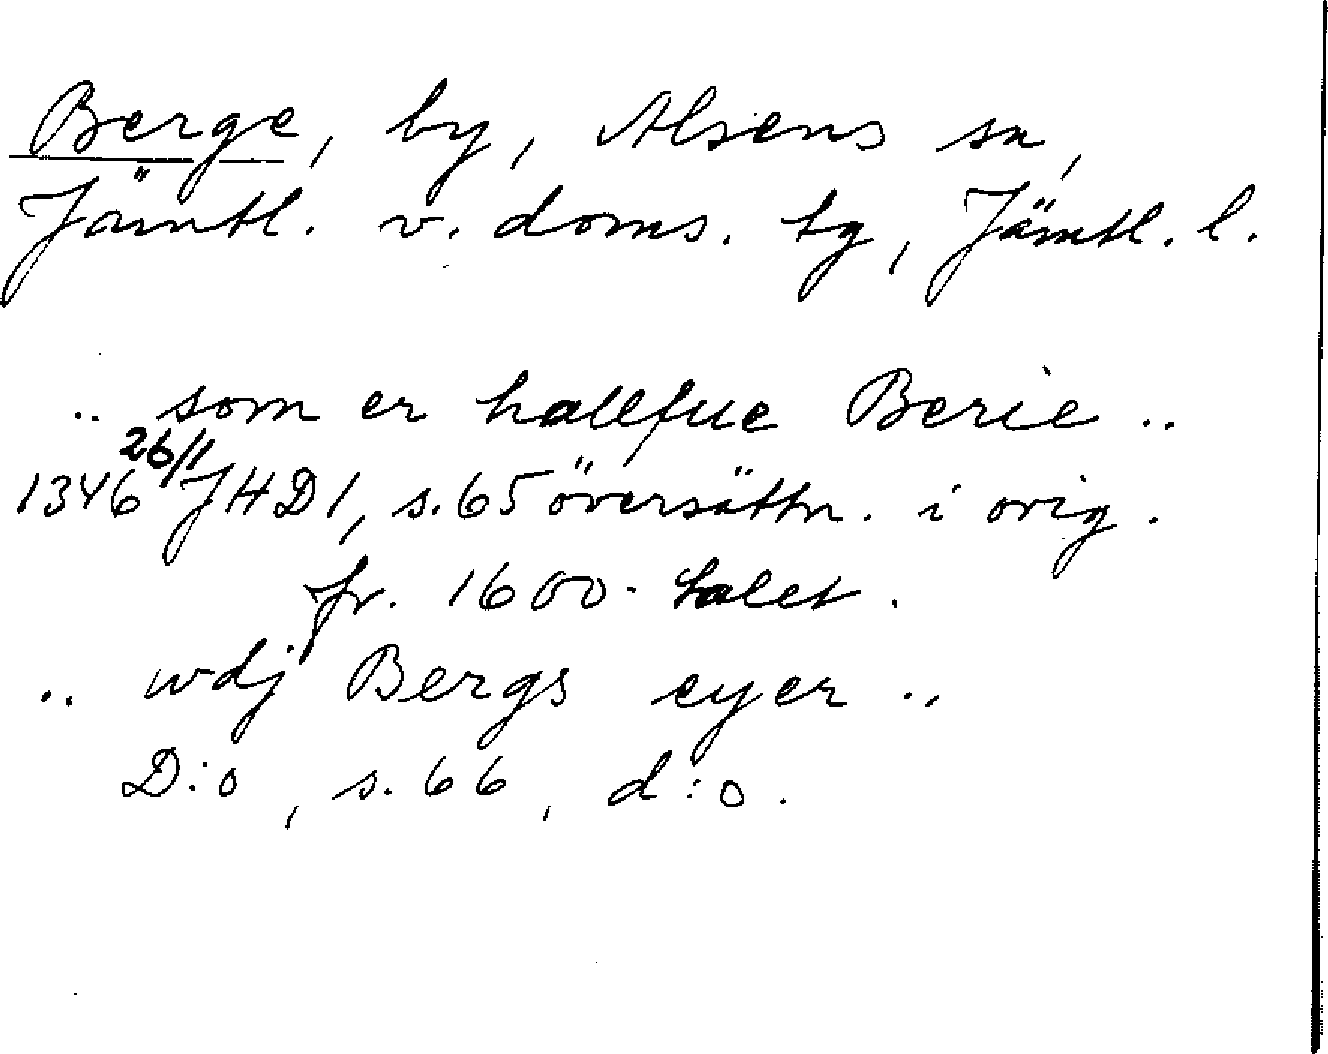 Berge, by, Alsens sn,
Jämtl. v. doms. tg, Jämtl. l.
.. som er hallfue Berie ..
1346 26/1 JHD 1, s. 65 översättn. i orig.
fr. 1600-talet.
.. wdj Bergs eyer ..
D:o, s. 66, d:o.